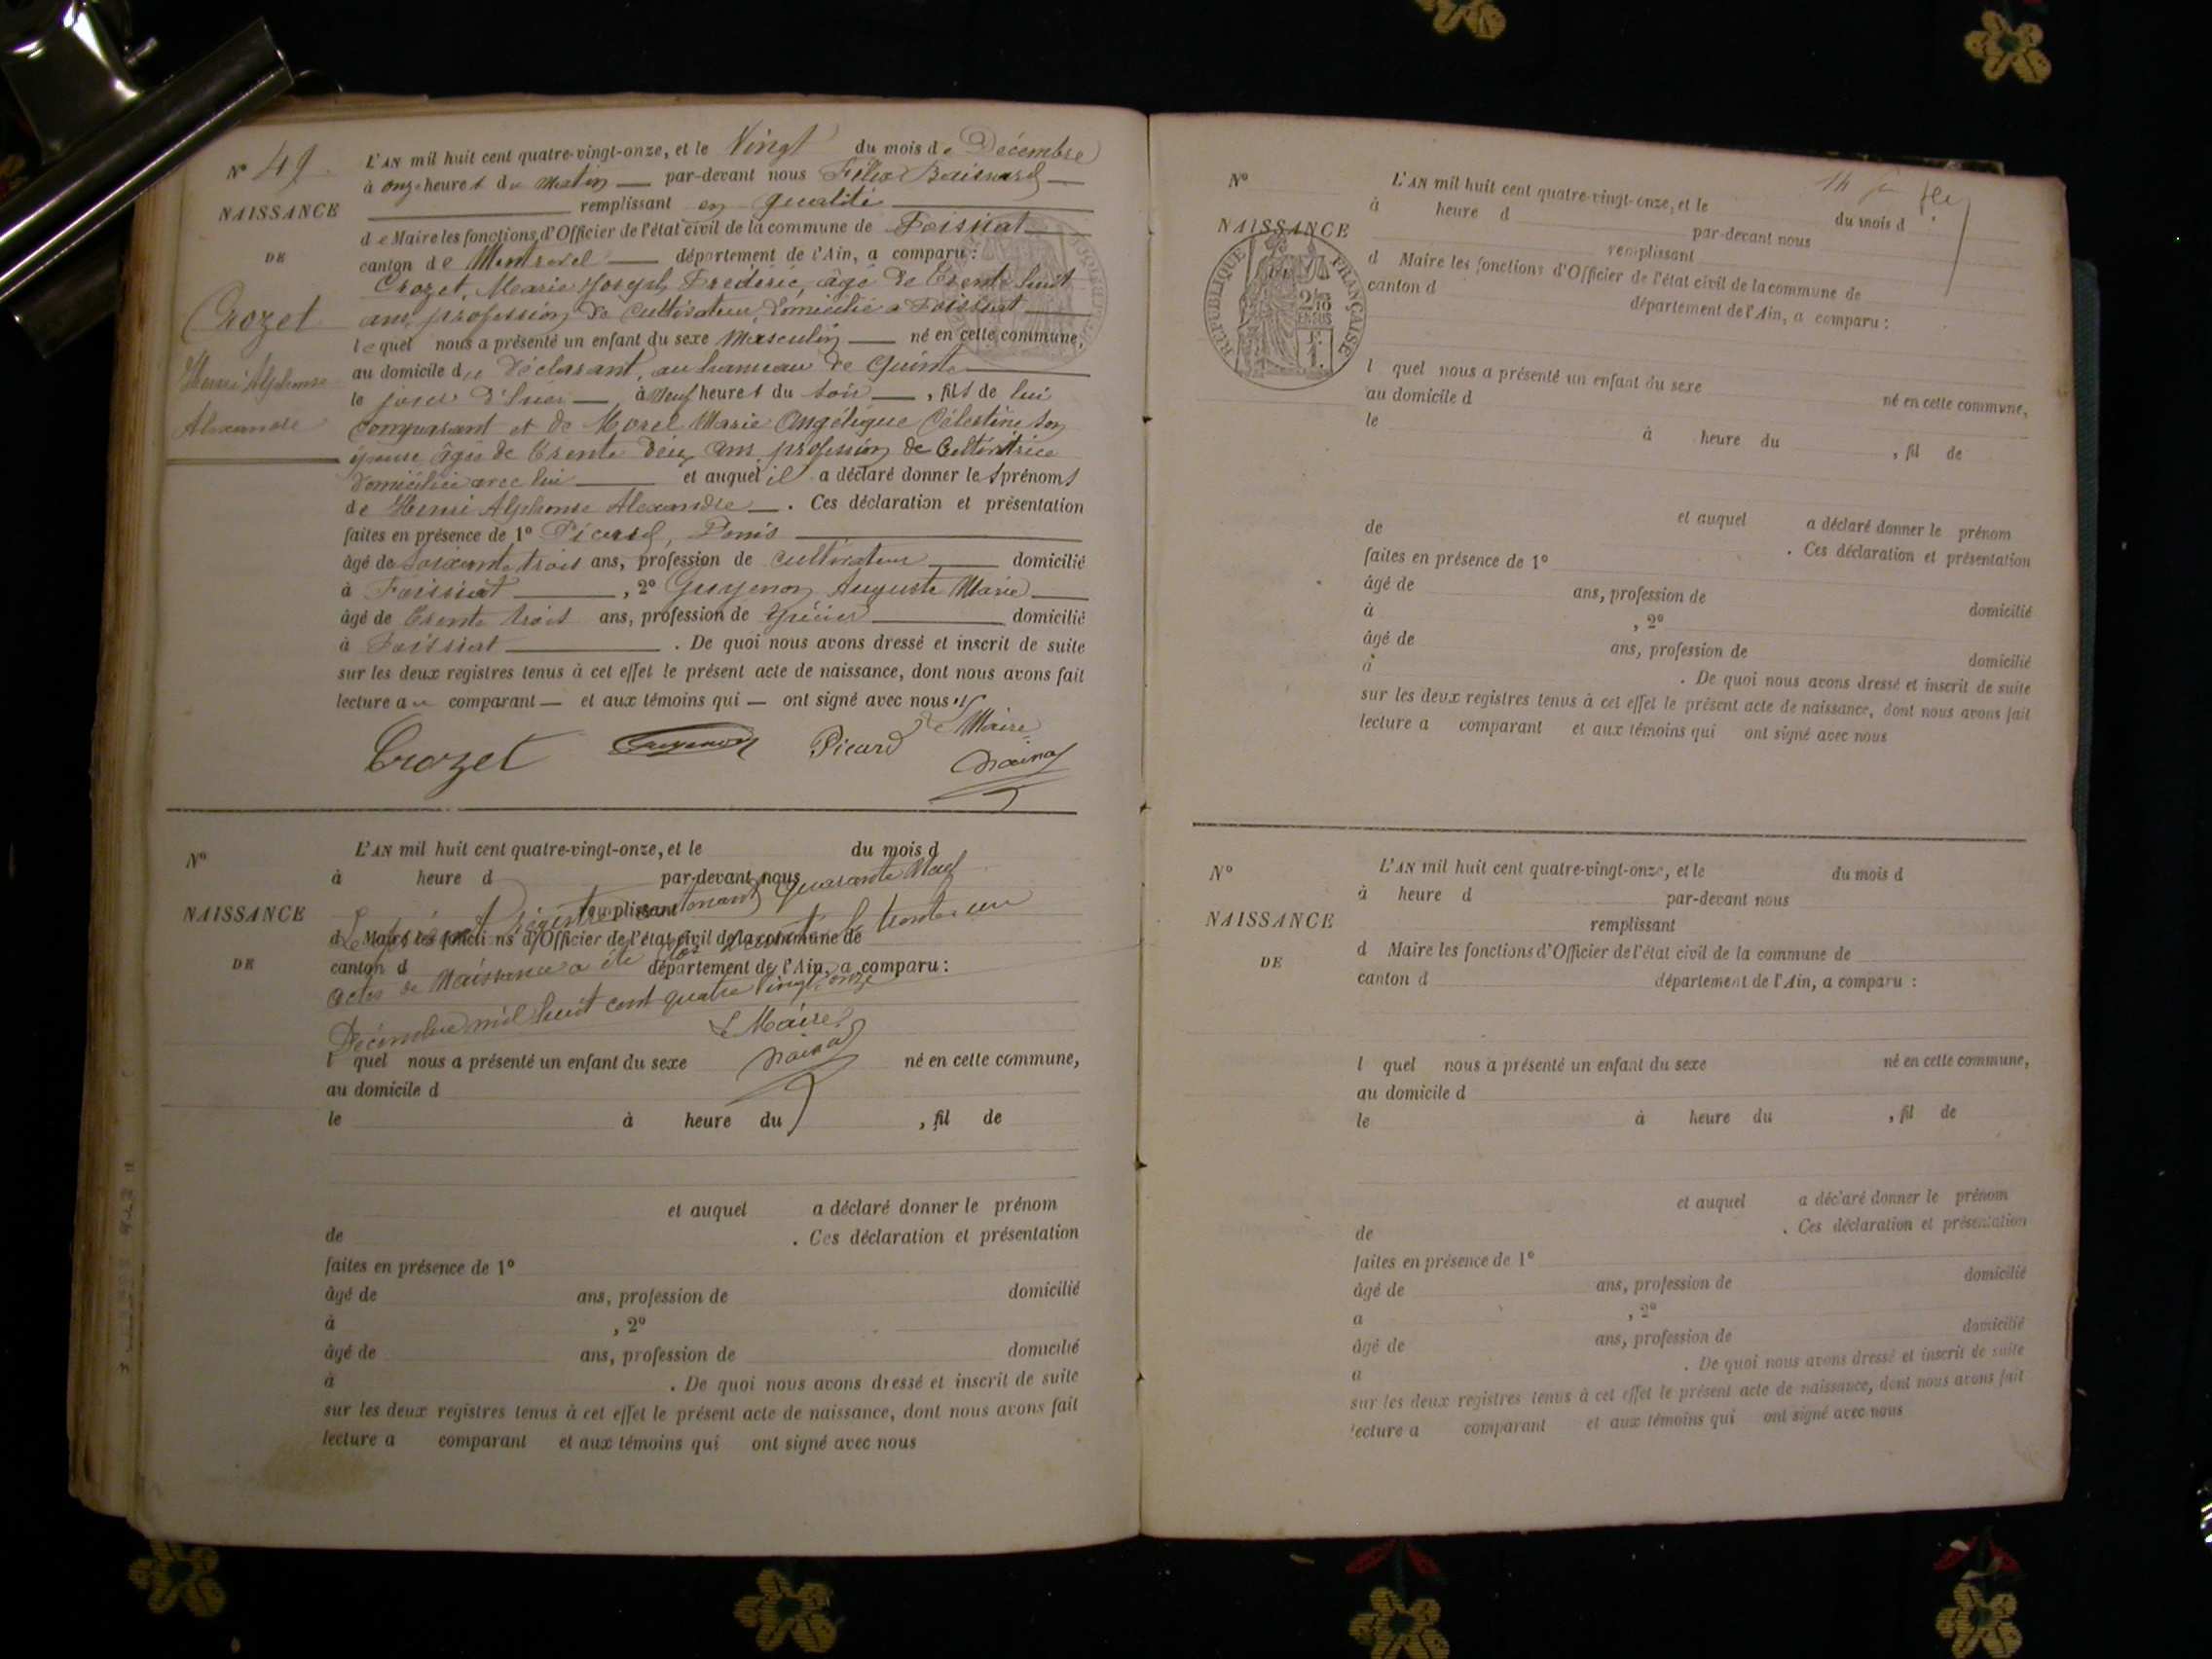 N° 49
NAISSANCE
DE
Crozet
Henri Alphonse
Alexandre
L'AN mil huit cent quatre-vingt-onze, et le Vingt du mois de Décembre
à onze heures du matin par-devant nous Félix
remplissant en qualité
de Maire les fonctions d'Officier de l'état civil de la commune de Foissiat
canton de Montrevel département de l'Ain, a comparu :
Crozet, Marie Joseph Frédéric, âgé de trente huit
ans, profession de cultivateur, domicilié à Foissiat
lequel nous a présenté un enfant du sexe Masculin né en cette commune,
au domicile du déclarant, au hameau de
le jour d'hier à neuf heures du soir, fils de lui
comparant et de Morel Marie Angélique Célestine son
épouse âgée de trente deux ans profession de Cultivatrice
domiciliée avec lui et auquel il a déclaré donner les prénoms
de Henri Alphonse Alexandre. Ces déclaration et présentation
faites en présence de 1° Picard, Denis
âgé de soixante trois ans, profession de cultivateur domicilié
à Foissiat, 2° Guyenon Auguste Marie
âgé de trente trois ans, profession de épicier domicilié
à Foissiat. De quoi nous avons dressé et inscrit de suite
sur les deux registres tenus à cet effet le présent acte de naissance, dont nous avons fait
lecture au comparant et aux témoins qui ont signé avec nous
Le Maire
Crozet Picard
N°
NAISSANCE
DE
L'AN mil huit cent quatre-vingt-onze, et le du mois d
à heure d par-devant nous
remplissant
d Maire les fonctions d'Officier de l'état civil de la commune de
canton d département de l'Ain, a comparu :
Le présent Régistre contenant quarante Neuf
actes de Naissance a été clos le trente un
Décembre mil huit cent quatre vingt onze
Le Maire
l quel nous a présenté un enfant du sexe né en cette commune,
au domicile d
le à heure du , fil de
et auquel a déclaré donner le prénom
de . Ces déclaration et présentation
faites en présence de 1°
âgé de ans, profession de domicilié
à , 2°
âgé de ans, profession de domicilié
à . De quoi nous avons dressé et inscrit de suite
sur les deux registres tenus à cet effet le présent acte de naissance, dont nous avons fait
lecture a comparant et aux témoins qui ont signé avec nous
N°
NAISSANCE
RÉPUBLIQUE FRANÇAISE
L'AN mil huit cent quatre-vingt-onze, et le du mois d
à heure d par-devant nous
remplissant
d Maire les fonctions d'Officier de l'état civil de la commune de
canton d département de l'Ain, a comparu :
l quel nous a présenté un enfant du sexe né en cette commune,
au domicile d
le à heure du , fil de
et auquel a déclaré donner le prénom
de . Ces déclaration et présentation
faites en présence de 1°
âgé de ans, profession de domicilié
à , 2°
âgé de ans, profession de domicilié
à . De quoi nous avons dressé et inscrit de suite
sur les deux registres tenus à cet effet le présent acte de naissance, dont nous avons fait
lecture a comparant et aux témoins qui ont signé avec nous
N°
NAISSANCE
DE
L'AN mil huit cent quatre-vingt-onze, et le du mois d
à heure d par-devant nous
remplissant
d Maire les fonctions d'Officier de l'état civil de la commune de
canton d département de l'Ain, a comparu :
l quel nous a présenté un enfant du sexe né en cette commune,
au domicile d
le à heure du , fil de
et auquel a déclaré donner le prénom
de . Ces déclaration et présentation
faites en présence de 1°
âgé de ans, profession de domicilié
a , 2°
âgé de ans, profession de domicilié
a . De quoi nous avons dressé et inscrit de suite
sur les deux registres tenus à cet effet le présent acte de naissance, dont nous avons fait
lecture a comparant et aux témoins qui ont signé avec nous